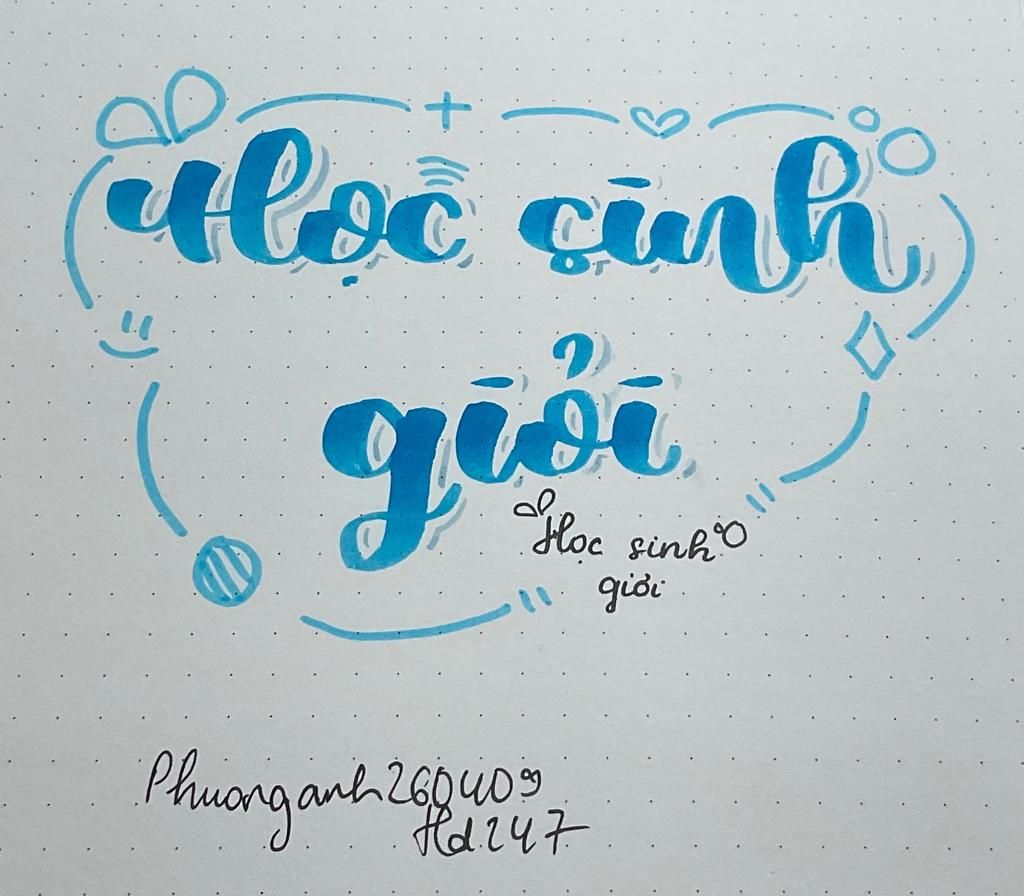 Học sinh
giỏi
Học sinh
giỏi
Phuonganh260409
Hd247